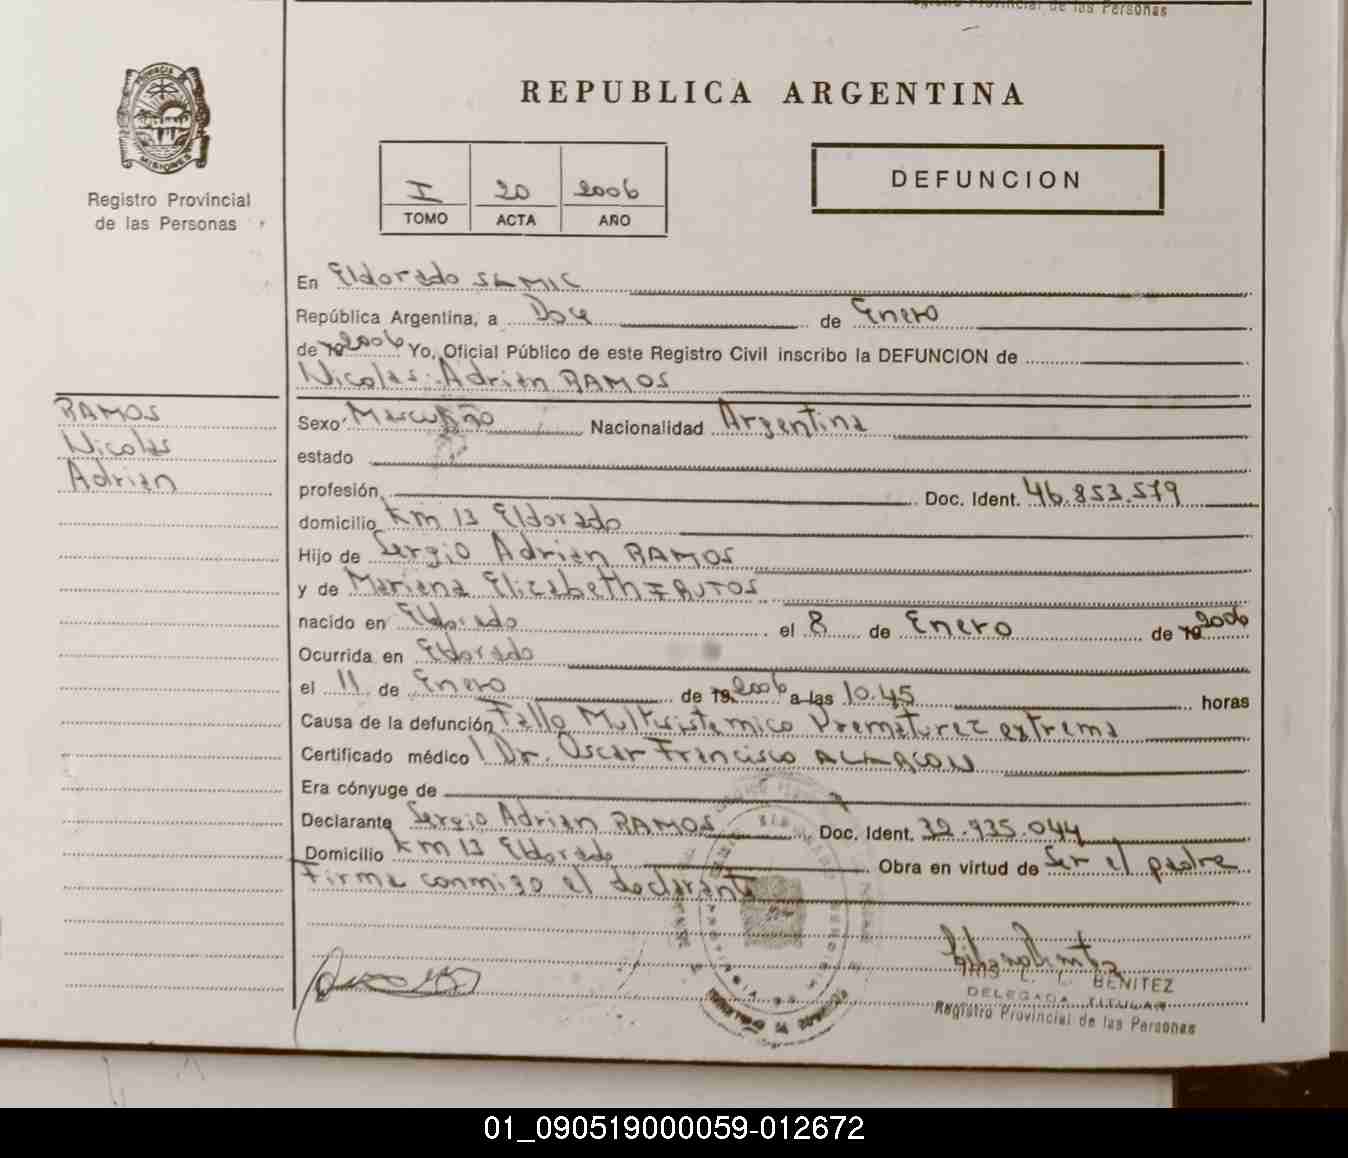 Registro Provincial de las Personas
REPUBLICA ARGENTINA
PROVINCIA
MISIONES
Registro Provincial
de las Personas
I 20 2006
TOMO ACTA AÑO
DEFUNCION
En Eldorado SAMIC
República Argentina, a Doce de Enero
de 2006 Yo, Oficial Público de este Registro Civil inscribo la DEFUNCION de
Nicolas Adrián RAMOS
RAMOS
Nicolas
Adrián
Sexo Masculino Nacionalidad Argentina
estado
profesión Doc. Ident. 46.853.579
domicilio Km 13 Eldorado
Hijo de Sergio Adrián RAMOS
y de Mariana Elizabeth FRUTOS
nacido en Eldorado el 8 de Enero de 2006
Ocurrida en Eldorado
el 11 de Enero de 19 2006 a las 10.45 horas
Causa de la defunción Fallo Multisistemico Prematurez extrema
Certificado médico Dr. Oscar Francisco ALARCON
Era cónyuge de
Declarante Sergio Adrián RAMOS Doc. Ident. 32.935.044
Domicilio Km 13 Eldorado Obra en virtud de Ser el padre
Firma conmigo el declarante
BENITEZ
DELEGADA TITULAR
Registro Provincial de las Personas
01_090519000059-012672